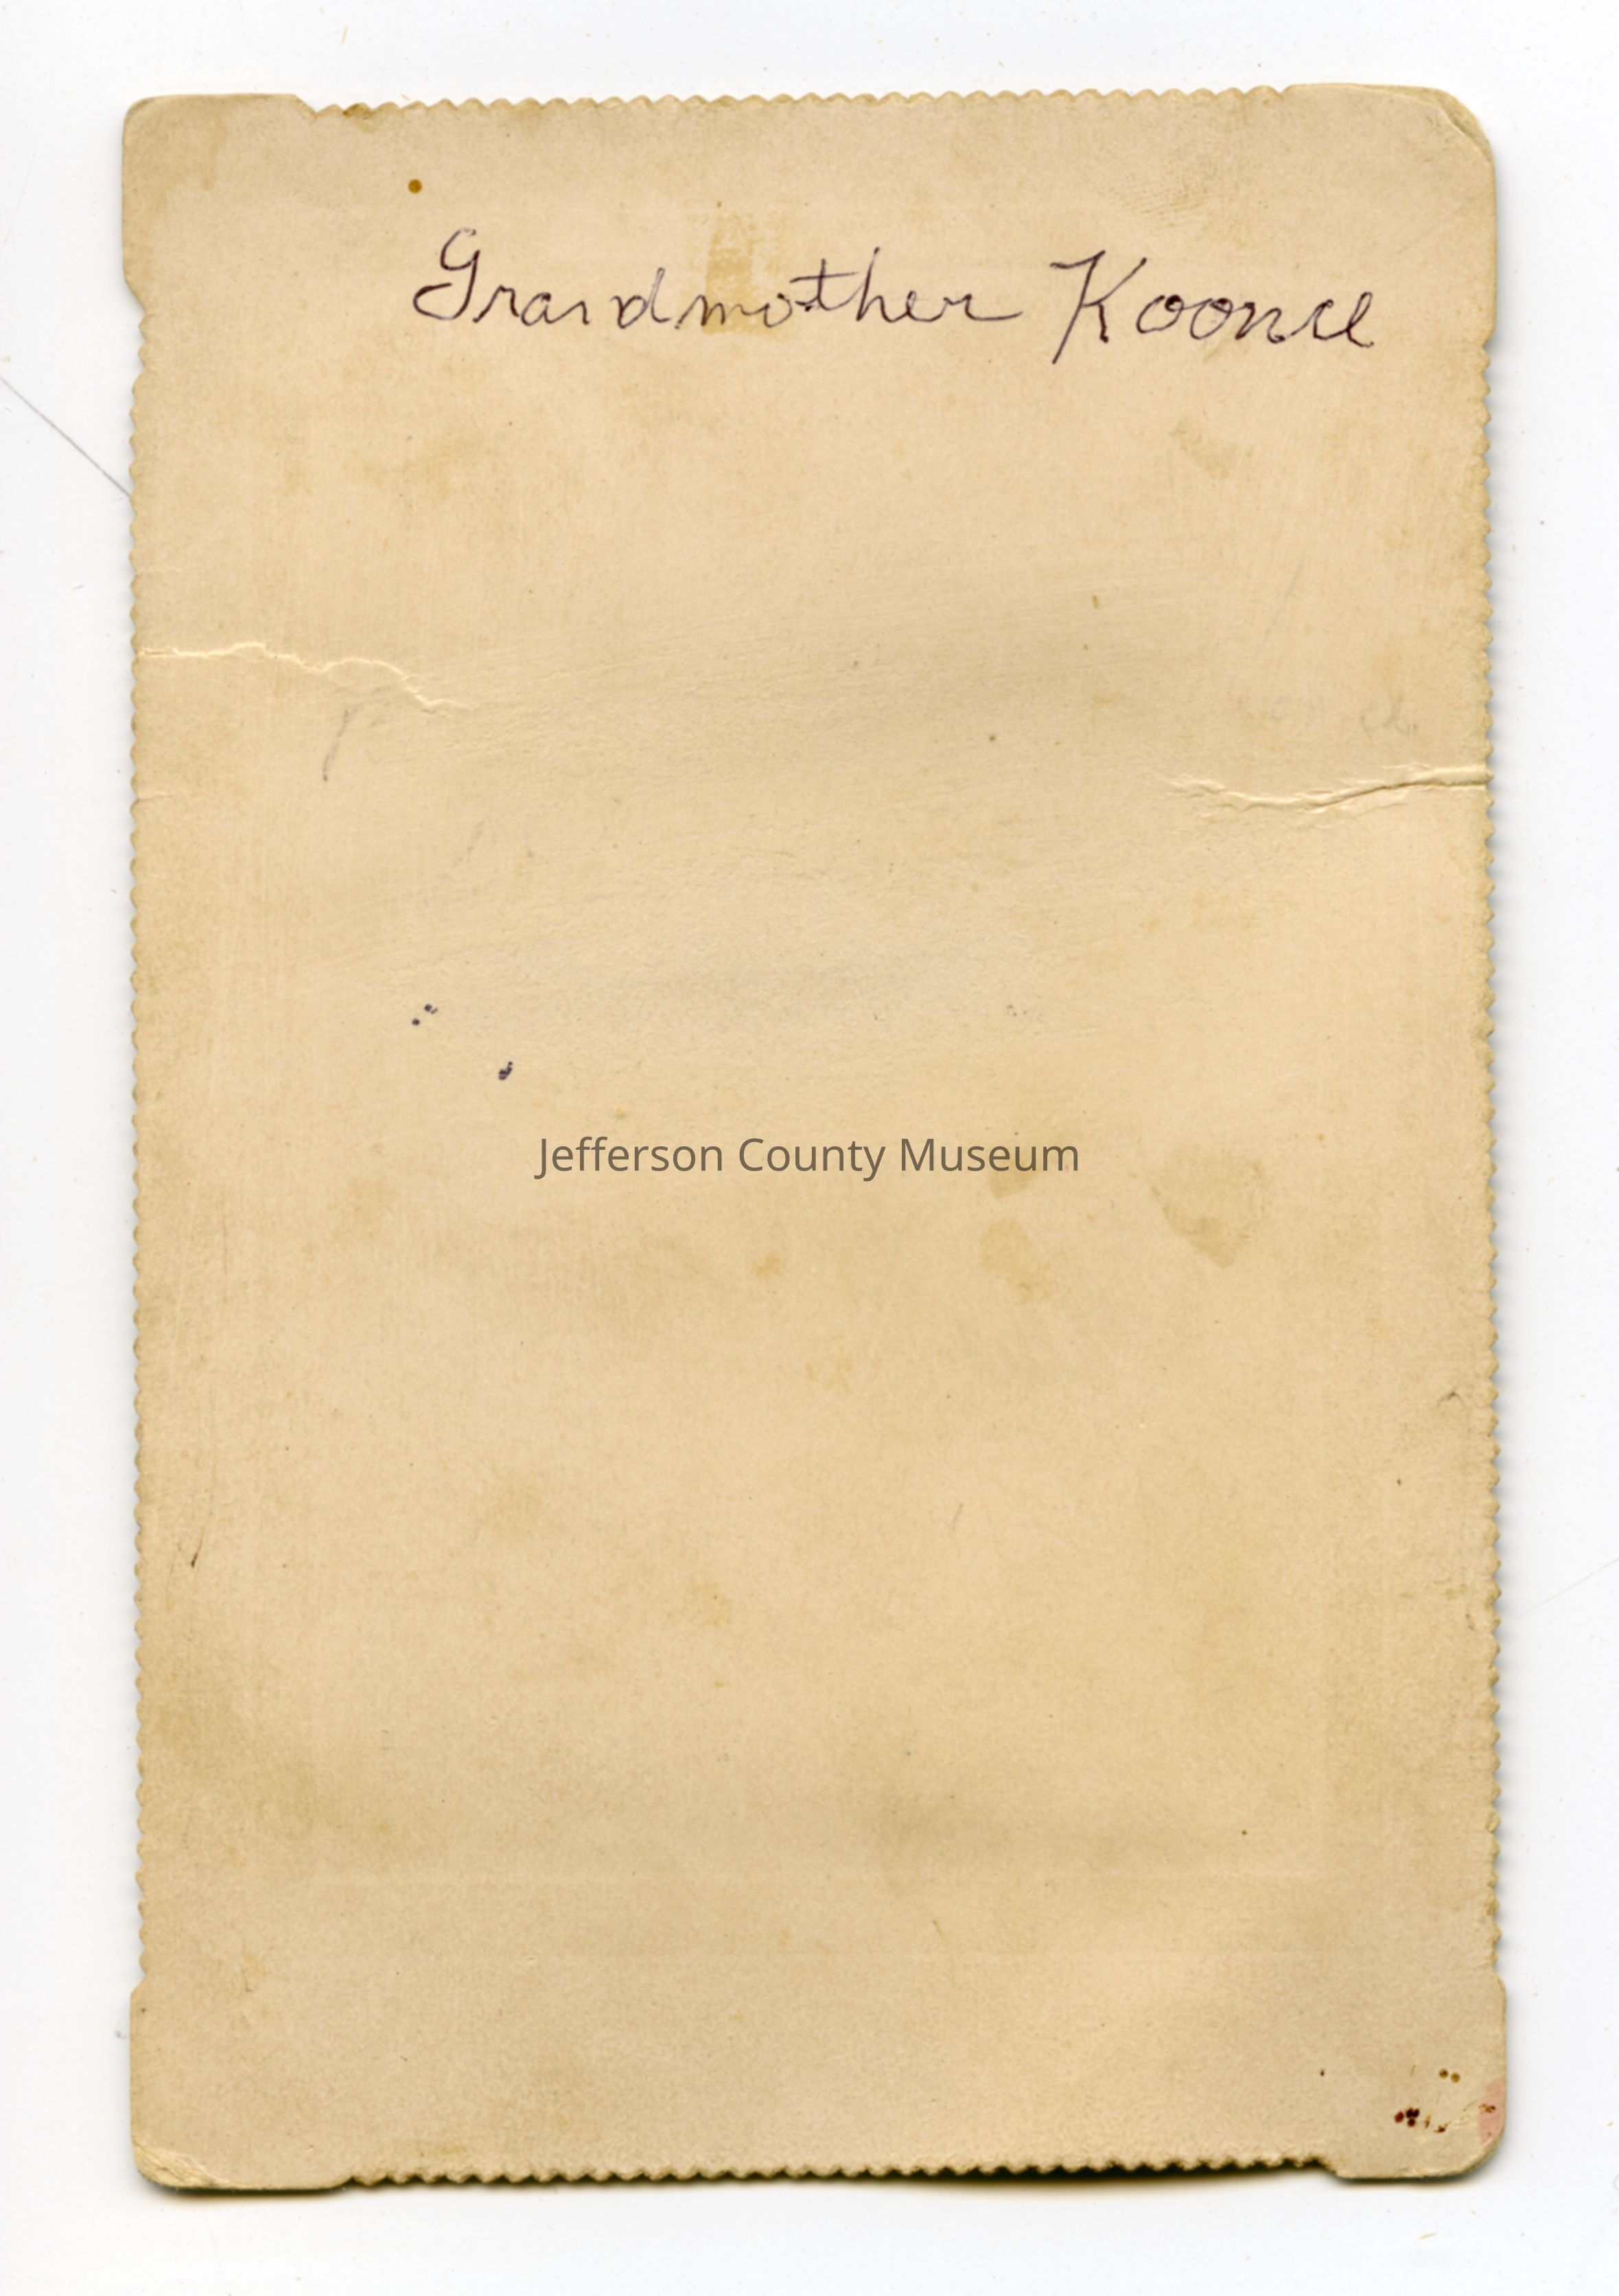 Grandmother Koonce
Jefferson County Museum